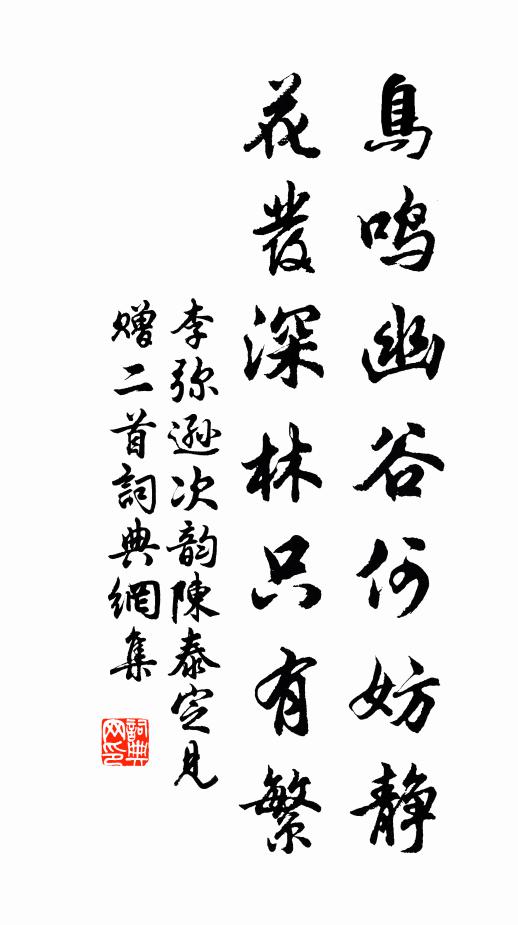 鳥鳴幽谷何妨静
花發深林只有繁
李弥遜次韵陳泰定見
贈二首詞典網集
詞典
网印